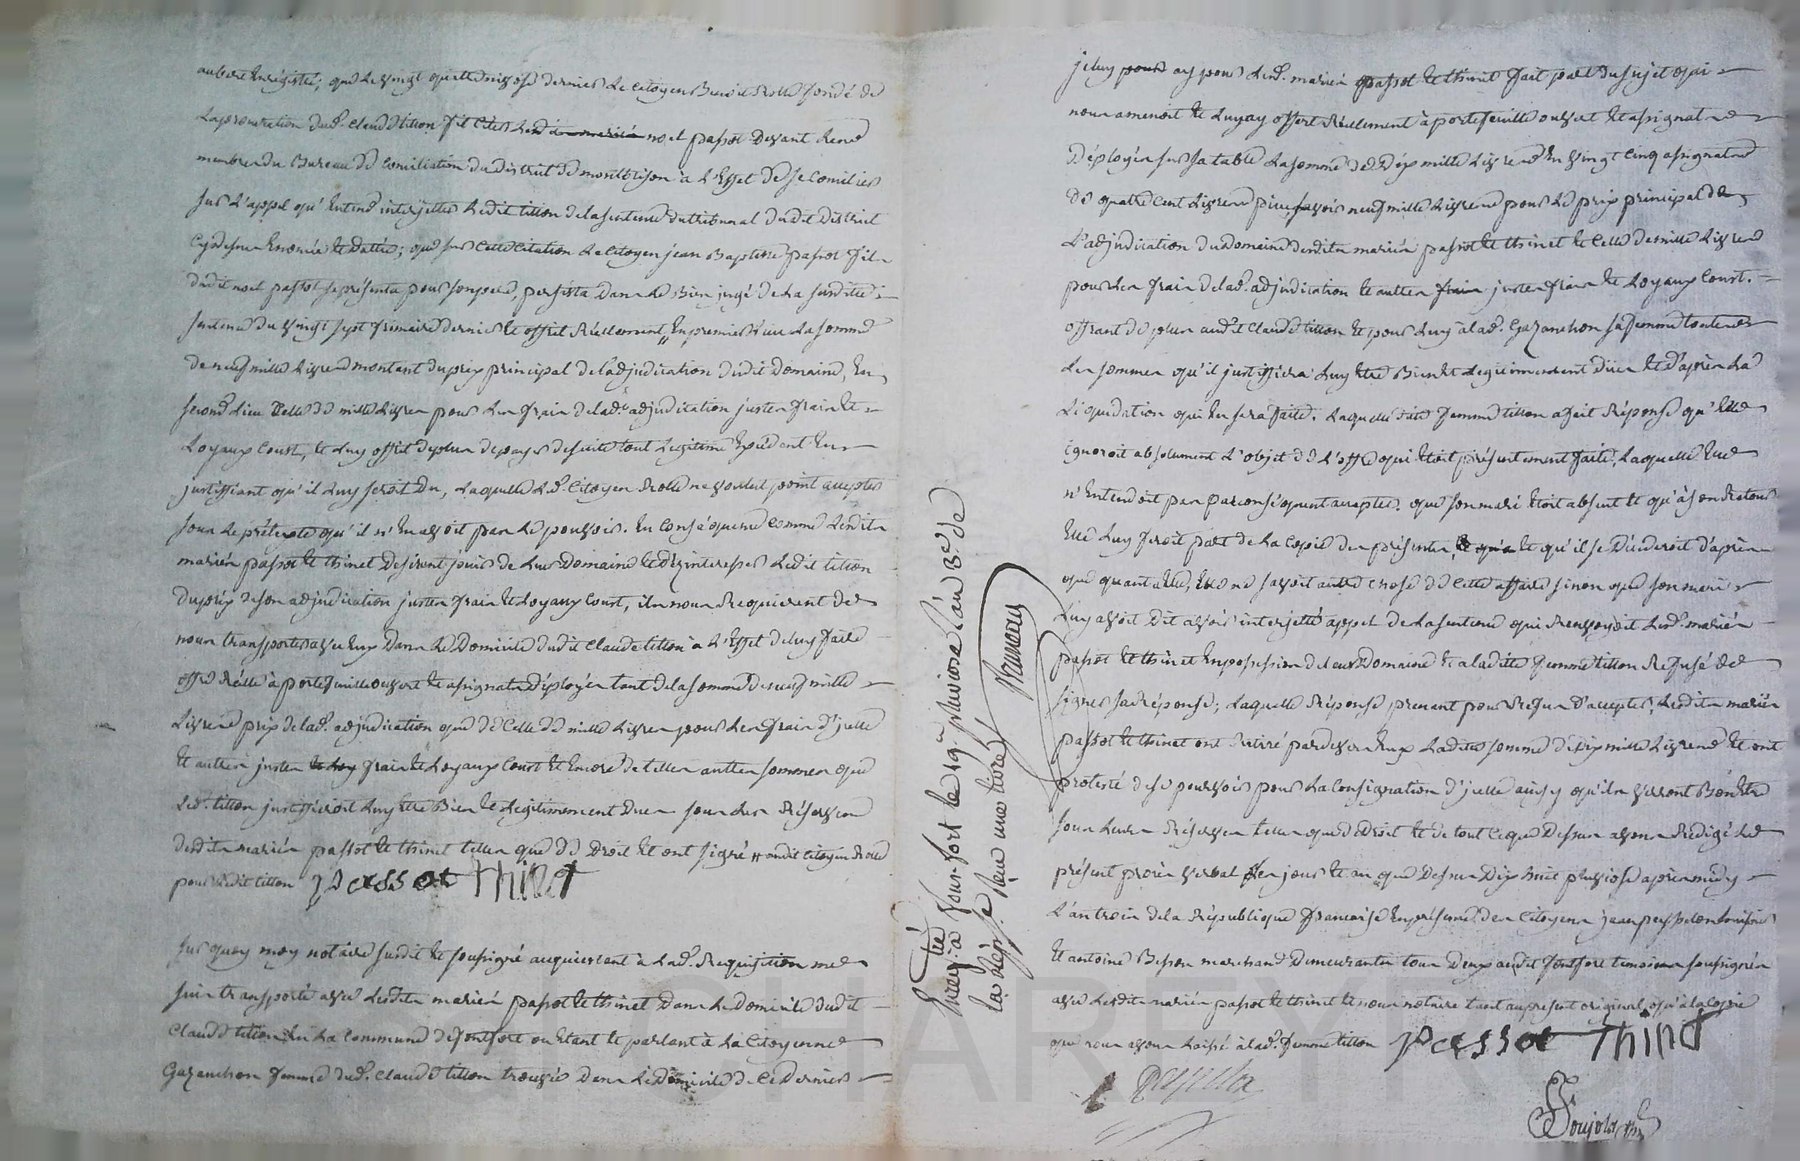 aubert Enregistré; que le vingt quatre nivose dernier le Citoyen Benoit Rolle fondé de
la procuration dud. Claude titton fit citer noel passot devant les
membres du Bureau de Conciliation du district de montbrison à L'Effet de se Concilier
sur L'appel qu'Entend interjetter ledit titton de la sentence du tribunal dudit District
Cy dessus Enoncée et dattée; que sur cette citation le Citoyen jean Baptiste passot fils
dudit noel passot se présenta pour son pere, persista dans le Bien jugé de la susditte
sentence du vingt sept frimaire dernier et offrit Réellement, En premier Lieu la somme
de neuf mille Livres montant du prix principal de l'adjudication dudit Domaine, En
second Lieu celle de mille Livres pour les frais de lade. adjudication justes frais et
Loyaux Cousts, et luy offrit de plus de payer de suite tout Legitime Excédent En
justiffiant qu'il luy seroit Du, Laquelle Led. Citoyen Rolle ne voulut point accepter
sous le prétexte qu'il n'En avoit pas le pouvoir. En Conséquence Comme Lesdits
mariés passot et thinet Desirent jouir de leur Domaine et dézinteresser Ledit titton
du prix de son adjudication justes frais et Loyaux Cousts, ils nous Requierent de
nous transporter avec Eux Dans le Domicile dudit Claude titton à L'Effet de luy faire
offre Réelle à portefeuille ouvert et assignats déployés tant de la somme de neuf mille
Livres prix de lad. adjudication que de Celle de mille Livres pour les frais d'icelle
et autres justes frais et Loyaux Cousts et Encore de telles autres sommes que
Led. titton justiffieroit luy être Bien et Legitimement Dues sous les Réserves
desdits mariés passot et thinet telles que de Droit Et ont signé
pour ledit titton passot thinet
sur quoy moy notaire susdit et soussigné acquiesçant à lad. Requisition me
suis transporté avec lesdits mariés passot et thinet Dans le domicile dudit
Claude titton En la Commune de sonfort ou Etant et parlant à la Citoyenne
Gazanchon femme dud. Claude titton trouvée Dans le domicile de Ce dernier
Enregistré à le 19e. pluviose L'an 3e. de
la Rép.
j'eluy ay pour lesd. mariés passot et thinet fait part du sujet qui
nous amenoit et luy ay offert Réellement à portefeuille ouvert et assignats
Déployés sur sa table la somme de Dix mille Livres En vingt Cinq assignats
de quatre cent Livres piece, savoir neuf mille Livres pour le prix principal de
L'adjudication du Domaine desdits mariés passot et thinet et Celle de mille Livres
pour les frais de lad. adjudication et autres justes frais et Loyaux Coust.
offrant de plus aud. Claude titton et pour luy à lad. Gazanchon sa femme toutes
Les sommes qu'il justiffiera luy être Bien et legitimement Dües et d'après La
Liquidation qui En sera faite. Laquelle dite femme titton a fait Réponse qu'Elle
ignoroit absolument L'objet de L'offre qui Etoit présentement faite, Laquelle Elle
n'Entendoit pas par conséquent accepter. que son mari Etoit absent et qu'à son Retour
Elle luy feroit part de la Copie des présentes, et qu'il se Décideroit d'après
que quant à Elle, Elle ne savoit autre chose de Cette affaire sinon que son mari
Luy avoit Dit avoir interjetté appel de la sentence qui Renvoyoit lesd. mariés
passot et thinet En possession de leur Domaine Et a laditte femme titton Refusé de
signer sa réponse; Laquelle Réponse prenant pour Refus D'accepter, lesdits mariés
passot et thinet ont Retiré pardevers Eux Laditte somme de dix mille Livres et ont
protesté de se pourvoir pour La Consignation d'icelle ainsy qu'ils verront Bon Etre
sous leurs Réserves telles que de Droit Et de tout Ce que Dessus avons Rédigé le
présent procès verbal les jour et an que Dessus Dix huit pluviose après midy
L'an trois de la République francoise En présence des Citoyens jean
Et antoine Besson marchand Demeurants tous Deux audit sonfort temoins soussignés
avec lesdits mariés passot et thinet et nous notaire tant au présent original qu'à la Copie
que nous avons Laissé à lad. femme titton passot thinet